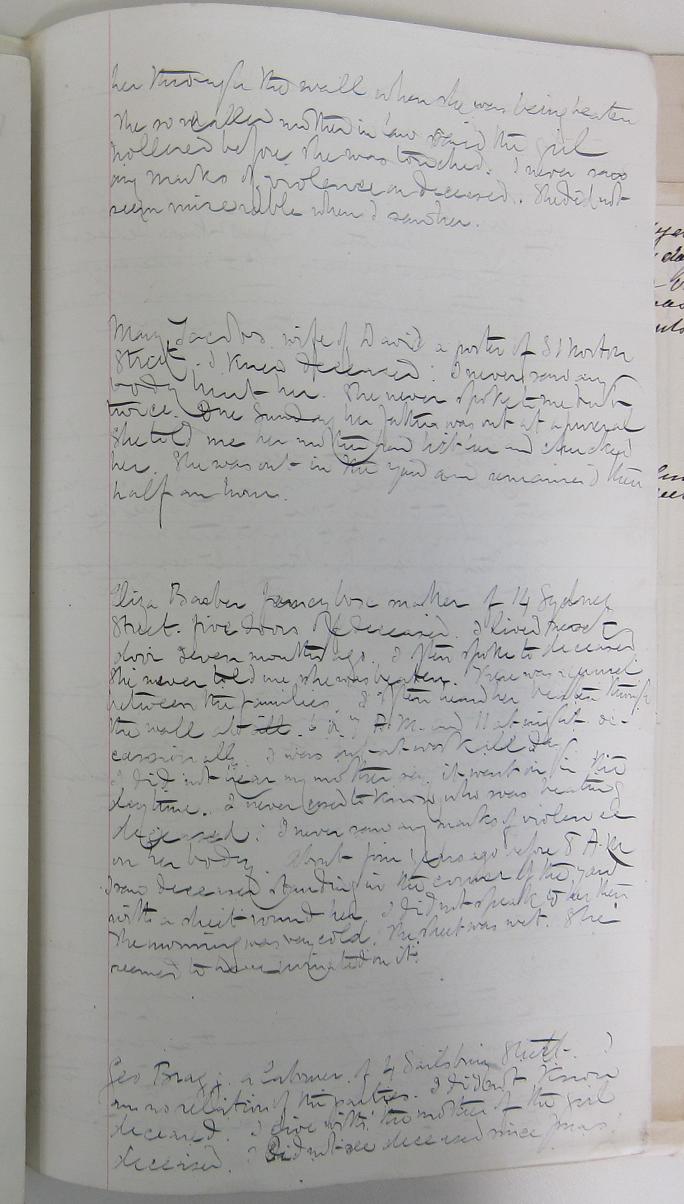 her through the wall when she was being beaten
The so called mother in law said the girl
hollered before she was touched. I never saw
any marks of violence on deceased. She did not
seem miserable when I saw her.
Mary Jacobs wife of David a porter of 51 Norton
Street. I knew deceased. I never saw any
body hurt her. She never spoke to me but
twice. One Sunday her father was out at a funeral
She told me her mother had hit her and chucked
her. She was out in the yard and remained there
half an hour.
Eliza Barber fancy box maker of 14 Sydney
Street. five doors off deceased. I lived next
door seven months ago. I often spoke to deceased
She never told me she was beaten. There was
between the families. I often heard her beaten through
the wall abt 6 or 7 A.M. and 11 at night oc-
casionally. I was out at work all day
I did not hear my mother say it went on in the
daytime. I never used to know who was beating
deceased. I never saw any marks of violence
on her body. About five years ago before 8 A.M
I saw deceased standing in the corner of the yard
with a sheet round her. I did not speak to her then
The morning was very cold. The sheet was wet. She
seemed to have urinated on it.
Geo Bragg. a laborer. of 4 Salisbury Street. I
am no relation of the parties. I did not know
deceased. I live with the mother of the girl
deceased. I did not see deceased since